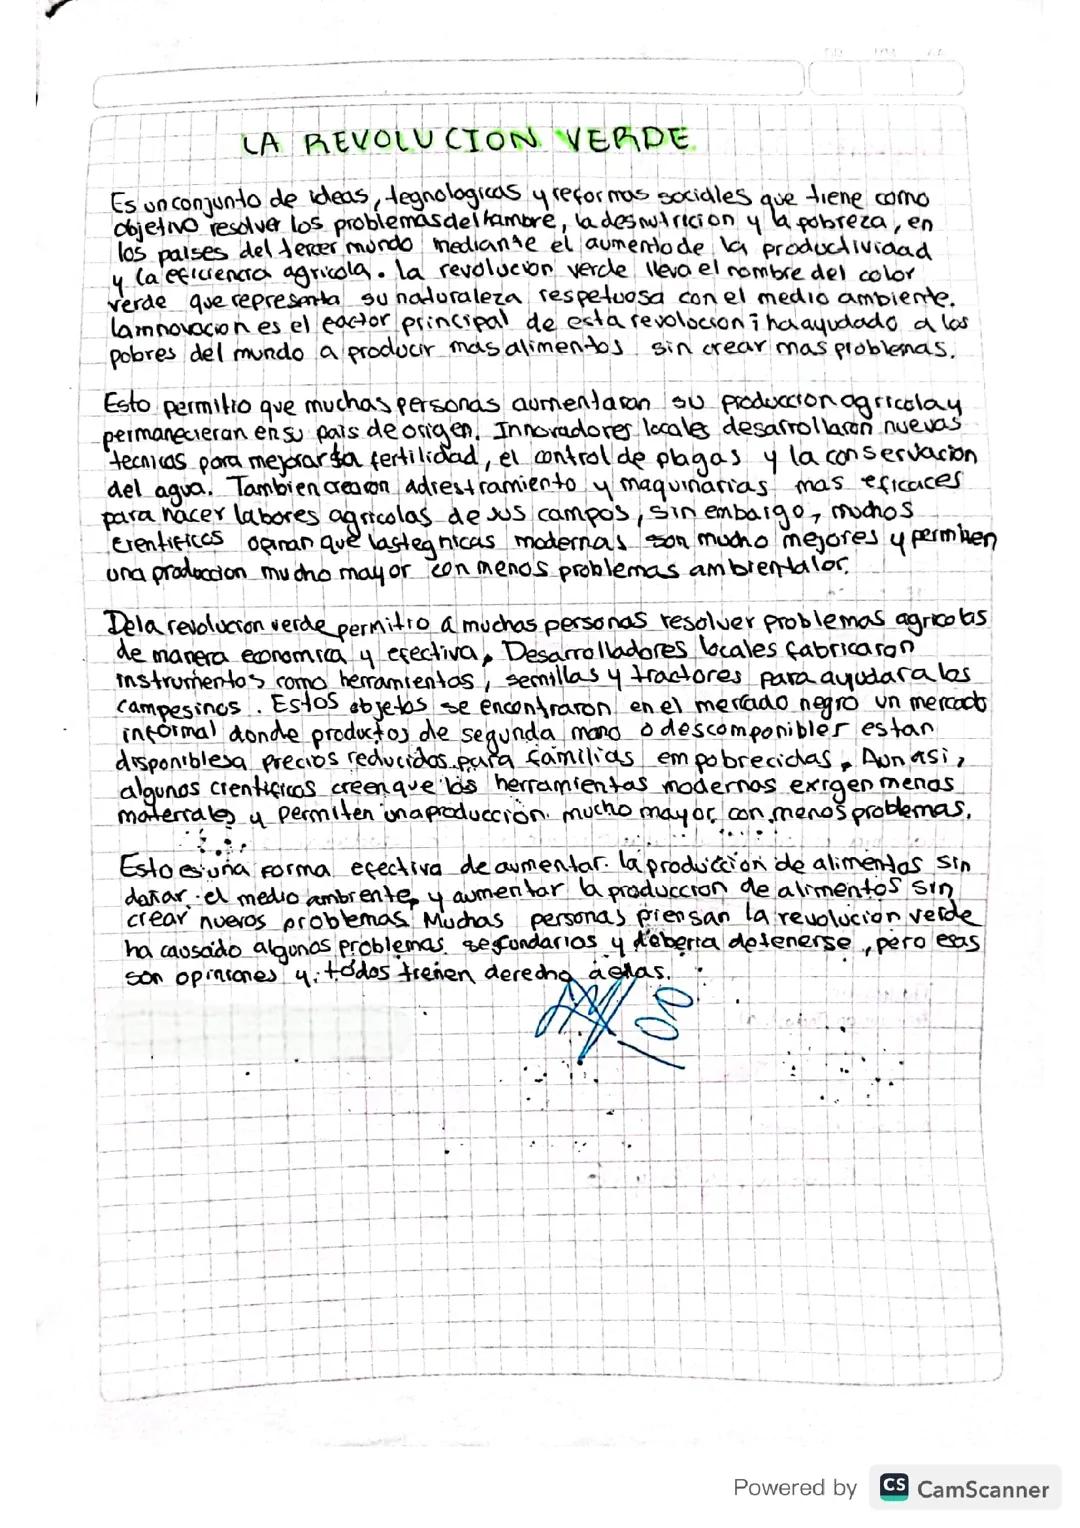 LA REVOLUCION VERDE
Es un conjunto de ideas, tegnologicas y reformas sociales que tiene como
objetivo resolver los problemas del hambre, la desnutricion y la pobreza, en
los paises del tercer mundo mediante el aumento de la productividad
y la eficiencia agricola. La revolucion verde lleva el nombre del color
verde que representa su naturaleza respetuosa con el medio ambiente.
La innovacion es el factor principal de esta revolucion; ha ayudado a los
pobres del mundo a producir mas alimentos sin crear mas problemas.
Esto permitio que muchas personas aumentaran su produccion agricola y
permanecieran en su pais de origen. Innovadores locales desarrollaron nuevas
tecnicas para mejorar la fertilidad, el control de plagas y la conservacion
del agua. Tambien crearon adrestramiento y maquinarias mas eficaces
para hacer labores agricolas de sus campos, sin embargo, muchos
cientificos opinan que las tegnicas modernas son mucho mejores y permiten
una produccion mucho mayor con menos problemas
De la revolucion verde permitio a muchas personas resolver problemas agricolas
de manera economica y efectiva, Desarrolladores locales fabricaron
instrumentos como herramientas, semillas y tractores para ayudar a los
campesinos. Estos objetos se encontraron en el mercado negro un mercado
informal donde productos de segunda mano o descomponibles estan
disponibles a precios reducidos para familias empobrecidas, Aun asi,
algunos cientificos creen que las herramientas modernas exigen menos
materiales y permiten una producción mucho mayor con menos problemas.
Esto es una forma efectiva de aumentar la produccion de alimentos sin
dañar el medio ambiente, y aumentar la produccion de alimentos sin
crear nuevos problemas. Muchas personas piensan la revolucion verde
ha causado algunos problemas segundarios y deberia detenerse, pero esas
son opiniones y todos tienen derecho a ellas.
Powered by CS CamScanner